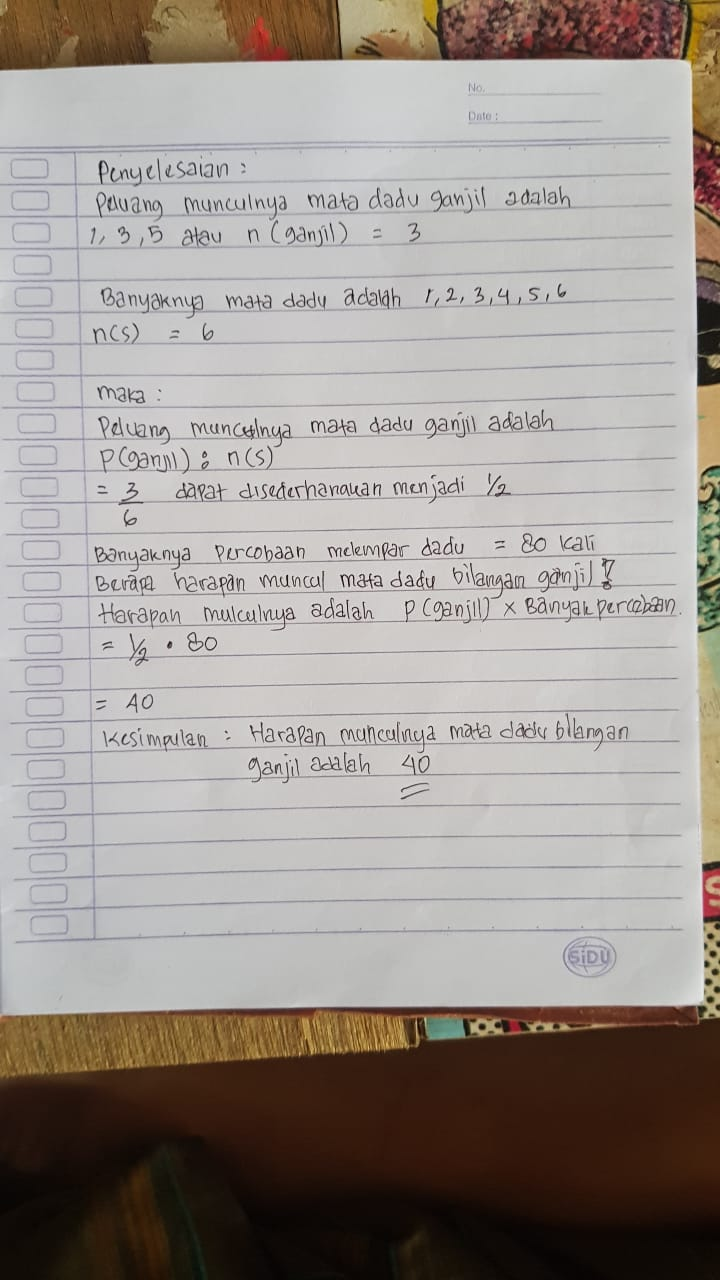 No.
Date :
Penyelesaian :
Peluang munculnya mata dadu ganjil adalah
1, 3, 5 atau n (ganjil) = 3
Banyaknya mata dadu adalah 1, 2, 3, 4, 5, 6
n(s) = 6
maka :
Peluang munculnya mata dadu ganjil adalah
P(ganjil) : n(s)
= 3/6 dapat disederhanakan menjadi 1/2
Banyaknya percobaan melempar dadu = 80 kali
Berapa harapan muncul mata dadu bilangan ganjil ?
Harapan mulculnya adalah P(ganjil) x Banyak percobaan.
= 1/2 • 80
= 40
Kesimpulan : Harapan munculnya mata dadu bilangan
ganjil adalah 40
SiDU